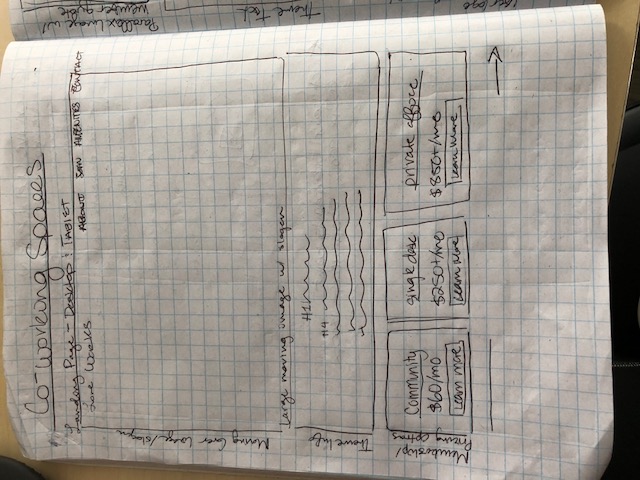 Co-working Spaces
Landing Page - Desktop | TABLET
ABOUT JOIN AMENITIES CONTACT
Works
Moving Cover Image/slogan
Large moving image w/ slogan
Theme Info
H1
H4
Membership/
Pricing options
Community
$60/mo
Learn more
single desk
$250+/mo
Learn More
private office
$850+/mo
Learn More
Parallax Image w/
member quote
Theme text